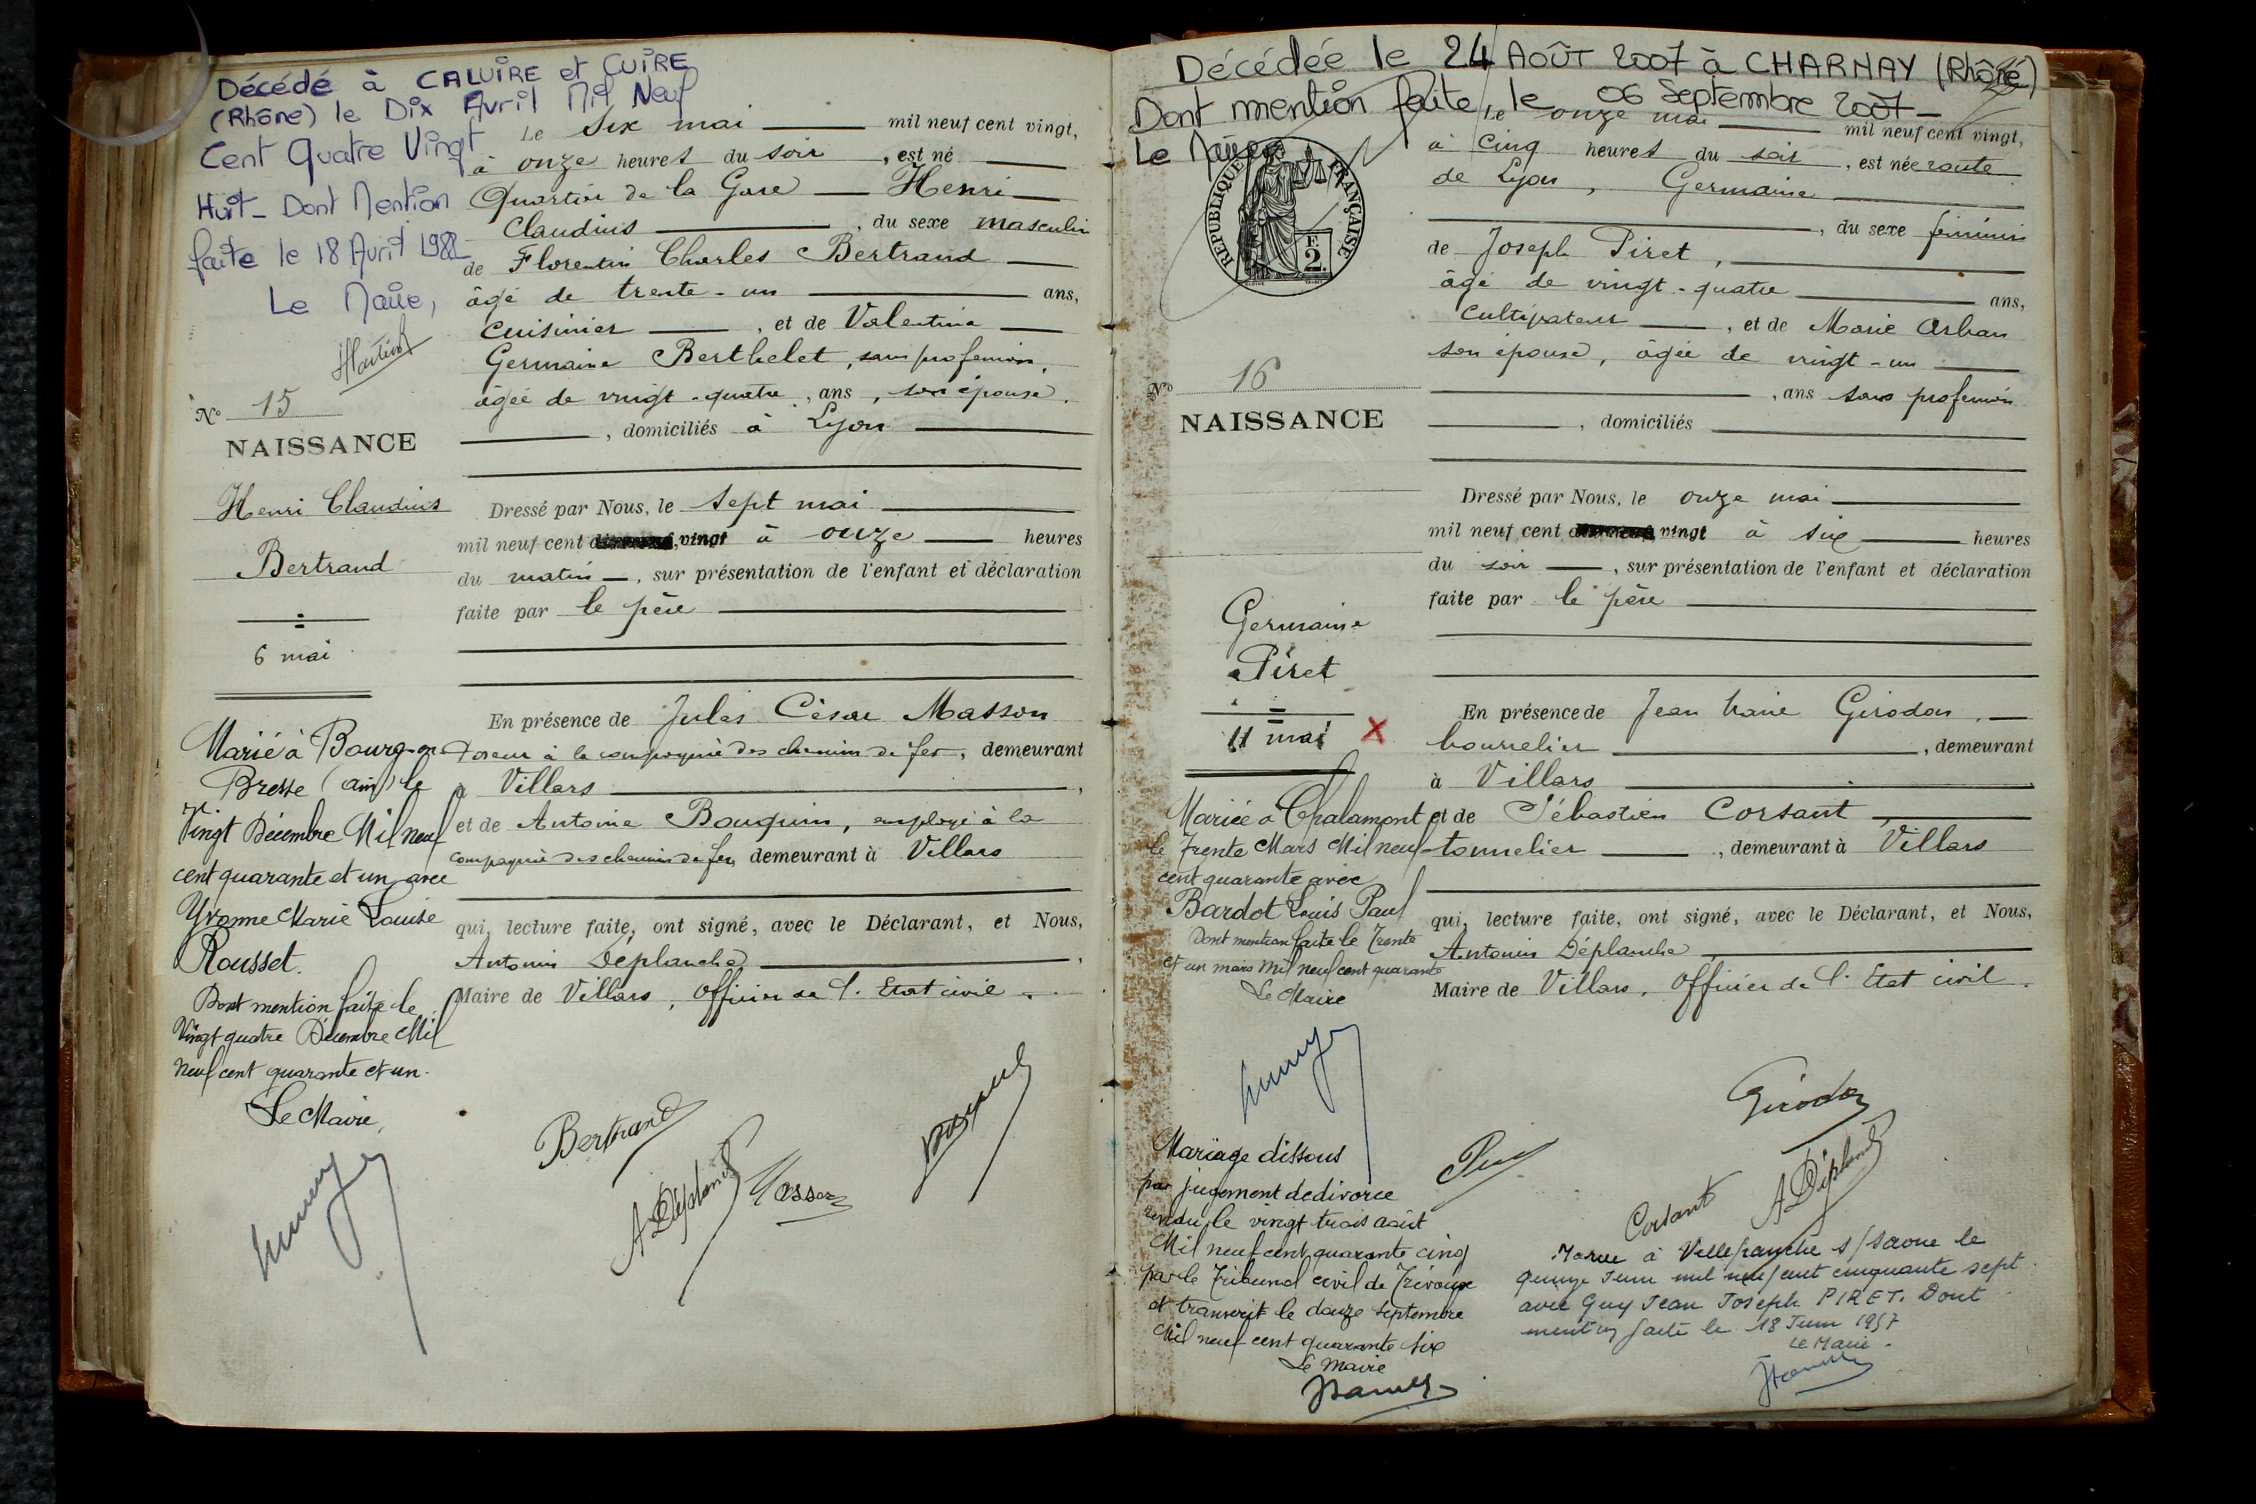 Décédé à CALUIRE et CUIRE
(Rhône) le Dix Avril Mil Neuf
Cent Quatre Vingt
Huit - Dont Mention
faite le 18 Avril 1988
Le Maire,
Le six mai mil neuf cent vingt,
à onze heures du soir, est né
Quartier de la Gare Henri
Claudius, du sexe masculin
de Florentin Charles Bertrand
âgé de trente-un ans,
cuisinier, et de Valentine
Germaine Berthelet, sans profession,
âgée de vingt-quatre, ans, son épouse.
, domiciliés à Lyon
No 15
NAISSANCE
Henri Claudius
Bertrand
6 mai
Dressé par Nous, le sept mai
mil neuf cent vingt à onze heures
du matin, sur présentation de l'enfant et déclaration
faite par le père
En présence de Jules César Masson
à la compagnie des chemins de fer, demeurant
à Villars,
et de Antoine Bouquin, employé à la
compagnie des chemins de fer, demeurant à Villars
qui, lecture faite, ont signé, avec le Déclarant, et Nous,
Antonin Déplanche,
Maire de Villars, Officier de l'Etat civil.
Marié à Bourg-en
Bresse (Ain) le
Vingt Décembre Mil neuf
cent quarante et un avec
Yvonne Marie Louise
Rousset.
Dont mention faite le
Vingt quatre Décembre Mil
neuf cent quarante et un.
Le Maire,
Bertrand
A Déplanche
Masson
Décédée le 24 AOÛT 2007 à CHARNAY (Rhône)
Dont mention faite, le 06 Septembre 2007
Le Maire
RÉPUBLIQUE FRANÇAISE
F.
2.
Le onze mai mil neuf cent vingt,
à cinq heures du soir, est née route
de Lyon, Germaine
, du sexe féminin
de Joseph Piret,
âgé de vingt-quatre ans,
cultivateur, et de Marie Arban
son épouse, âgée de vingt-un
, ans sans profession
, domiciliés
No 16
NAISSANCE
Germaine
Piret
11 mai X
Dressé par Nous, le onze mai
mil neuf cent vingt à six heures
du soir, sur présentation de l'enfant et déclaration
faite par le père
En présence de Jean Marie Girodon,
bourrelier, demeurant
à Villars
et de Sébastien Corsant,
tonnelier, demeurant à Villars
qui, lecture faite, ont signé, avec le Déclarant, et Nous,
Antonin Déplanche,
Maire de Villars, Officier de l'Etat civil.
Mariée à Chalamont
le Trente Mars Mil neuf
cent quarante avec
Bardot Louis Paul
Dont mention faite le Trente
et un mars Mil neuf cent quarante
Le Maire
Mariage dissous
par jugement de divorce
rendu le vingt trois août
Mil neuf cent quarante cinq
par le Tribunal civil de Trévoux
et transcrit le douze septembre
Mil neuf cent quarante six
Le Maire
Girodon
Corsant
A Déplanche
Mariée à Villefranche s/Saone le
quinze Juin mil neuf cent cinquante sept
avec Guy Jean Joseph PIRET. Dont
mention faite le 18 Juin 1957
Le Maire.